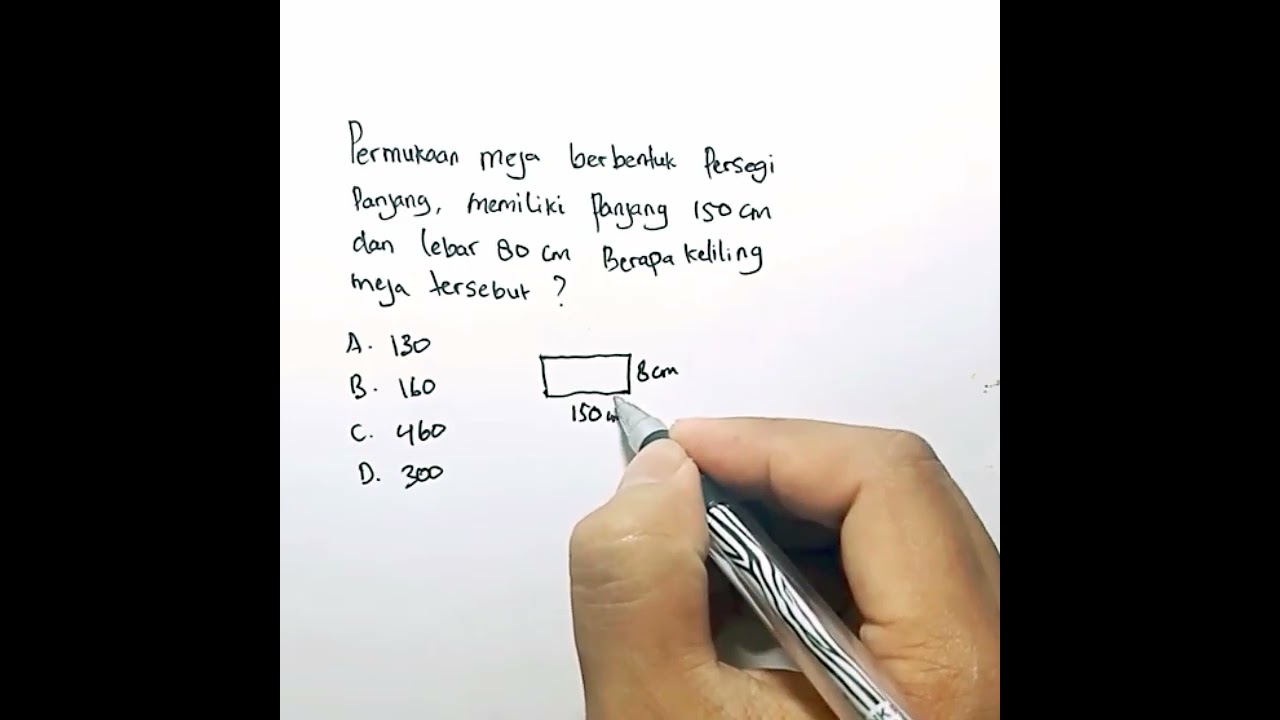 Permukaan meja berbentuk Persegi
Panjang, memiliki Panjang 150 cm
dan lebar 80 cm Berapa keliling
meja tersebut ?
A. 130
B. 160
C. 460
D. 300
8 cm
150